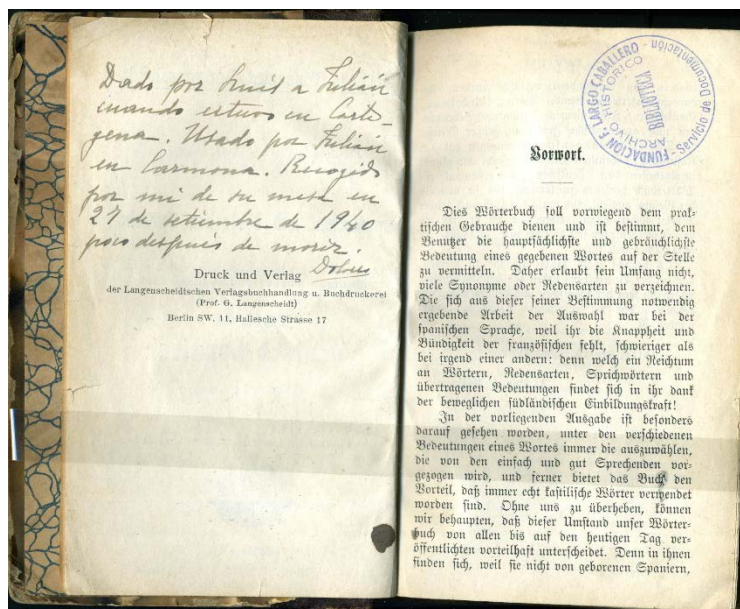 Dado por Luis a Julián
cuando estuvo en Carta-
gena. Usado por Julián
en Carmona. Recogido
por mi de su mesa en
27 de setiembre de 1940
poco después de morir.
Druck und Verlag
der Langenscheidtschen Verlagsbuchhandlung u. Buchdruckerei
(Prof. G. Langenscheidt)
Berlin SW. 11, Hallesche Strasse 17
FUNDACIÓN F. LARGO CABALLERO - Servicio de Documentación
ARCHIVO HISTORICO
BIBLIOTECA
Vorwort.
Dies Wörterbuch soll vorwiegend dem prak-
tischen Gebrauche dienen und ist bestimmt, dem
Benutzer die hauptsächlichste und gebräuchlichste
Bedeutung eines gegebenen Wortes auf der Stelle
zu vermitteln. Daher erlaubt sein Umfang nicht,
viele Synonyme oder Redensarten zu verzeichnen.
Die sich aus dieser seiner Bestimmung notwendig
ergebende Arbeit der Auswahl war bei der
spanischen Sprache, weil ihr die Knappheit und
Bündigkeit der französischen fehlt, schwieriger als
bei irgend einer andern: denn welch ein Reichtum
an Wörtern, Redensarten, Sprichwörtern und
übertragenen Bedeutungen findet sich in ihr dank
der beweglichen südländischen Einbildungskraft!
In der vorliegenden Ausgabe ist besonders
darauf gesehen worden, unter den verschiedenen
Bedeutungen eines Wortes immer die auszuwählen,
die von den einfach und gut Sprechenden vor-
gezogen wird, und ferner bietet das Buch den
Vorteil, daß immer echt kastilische Wörter verwendet
worden sind. Ohne uns zu überheben, können
wir behaupten, daß dieser Umstand unser Wörter-
buch von allen bis auf den heutigen Tag ver-
öffentlichten vorteilhaft unterscheidet. Denn in ihnen
finden sich, weil sie nicht von geborenen Spaniern,